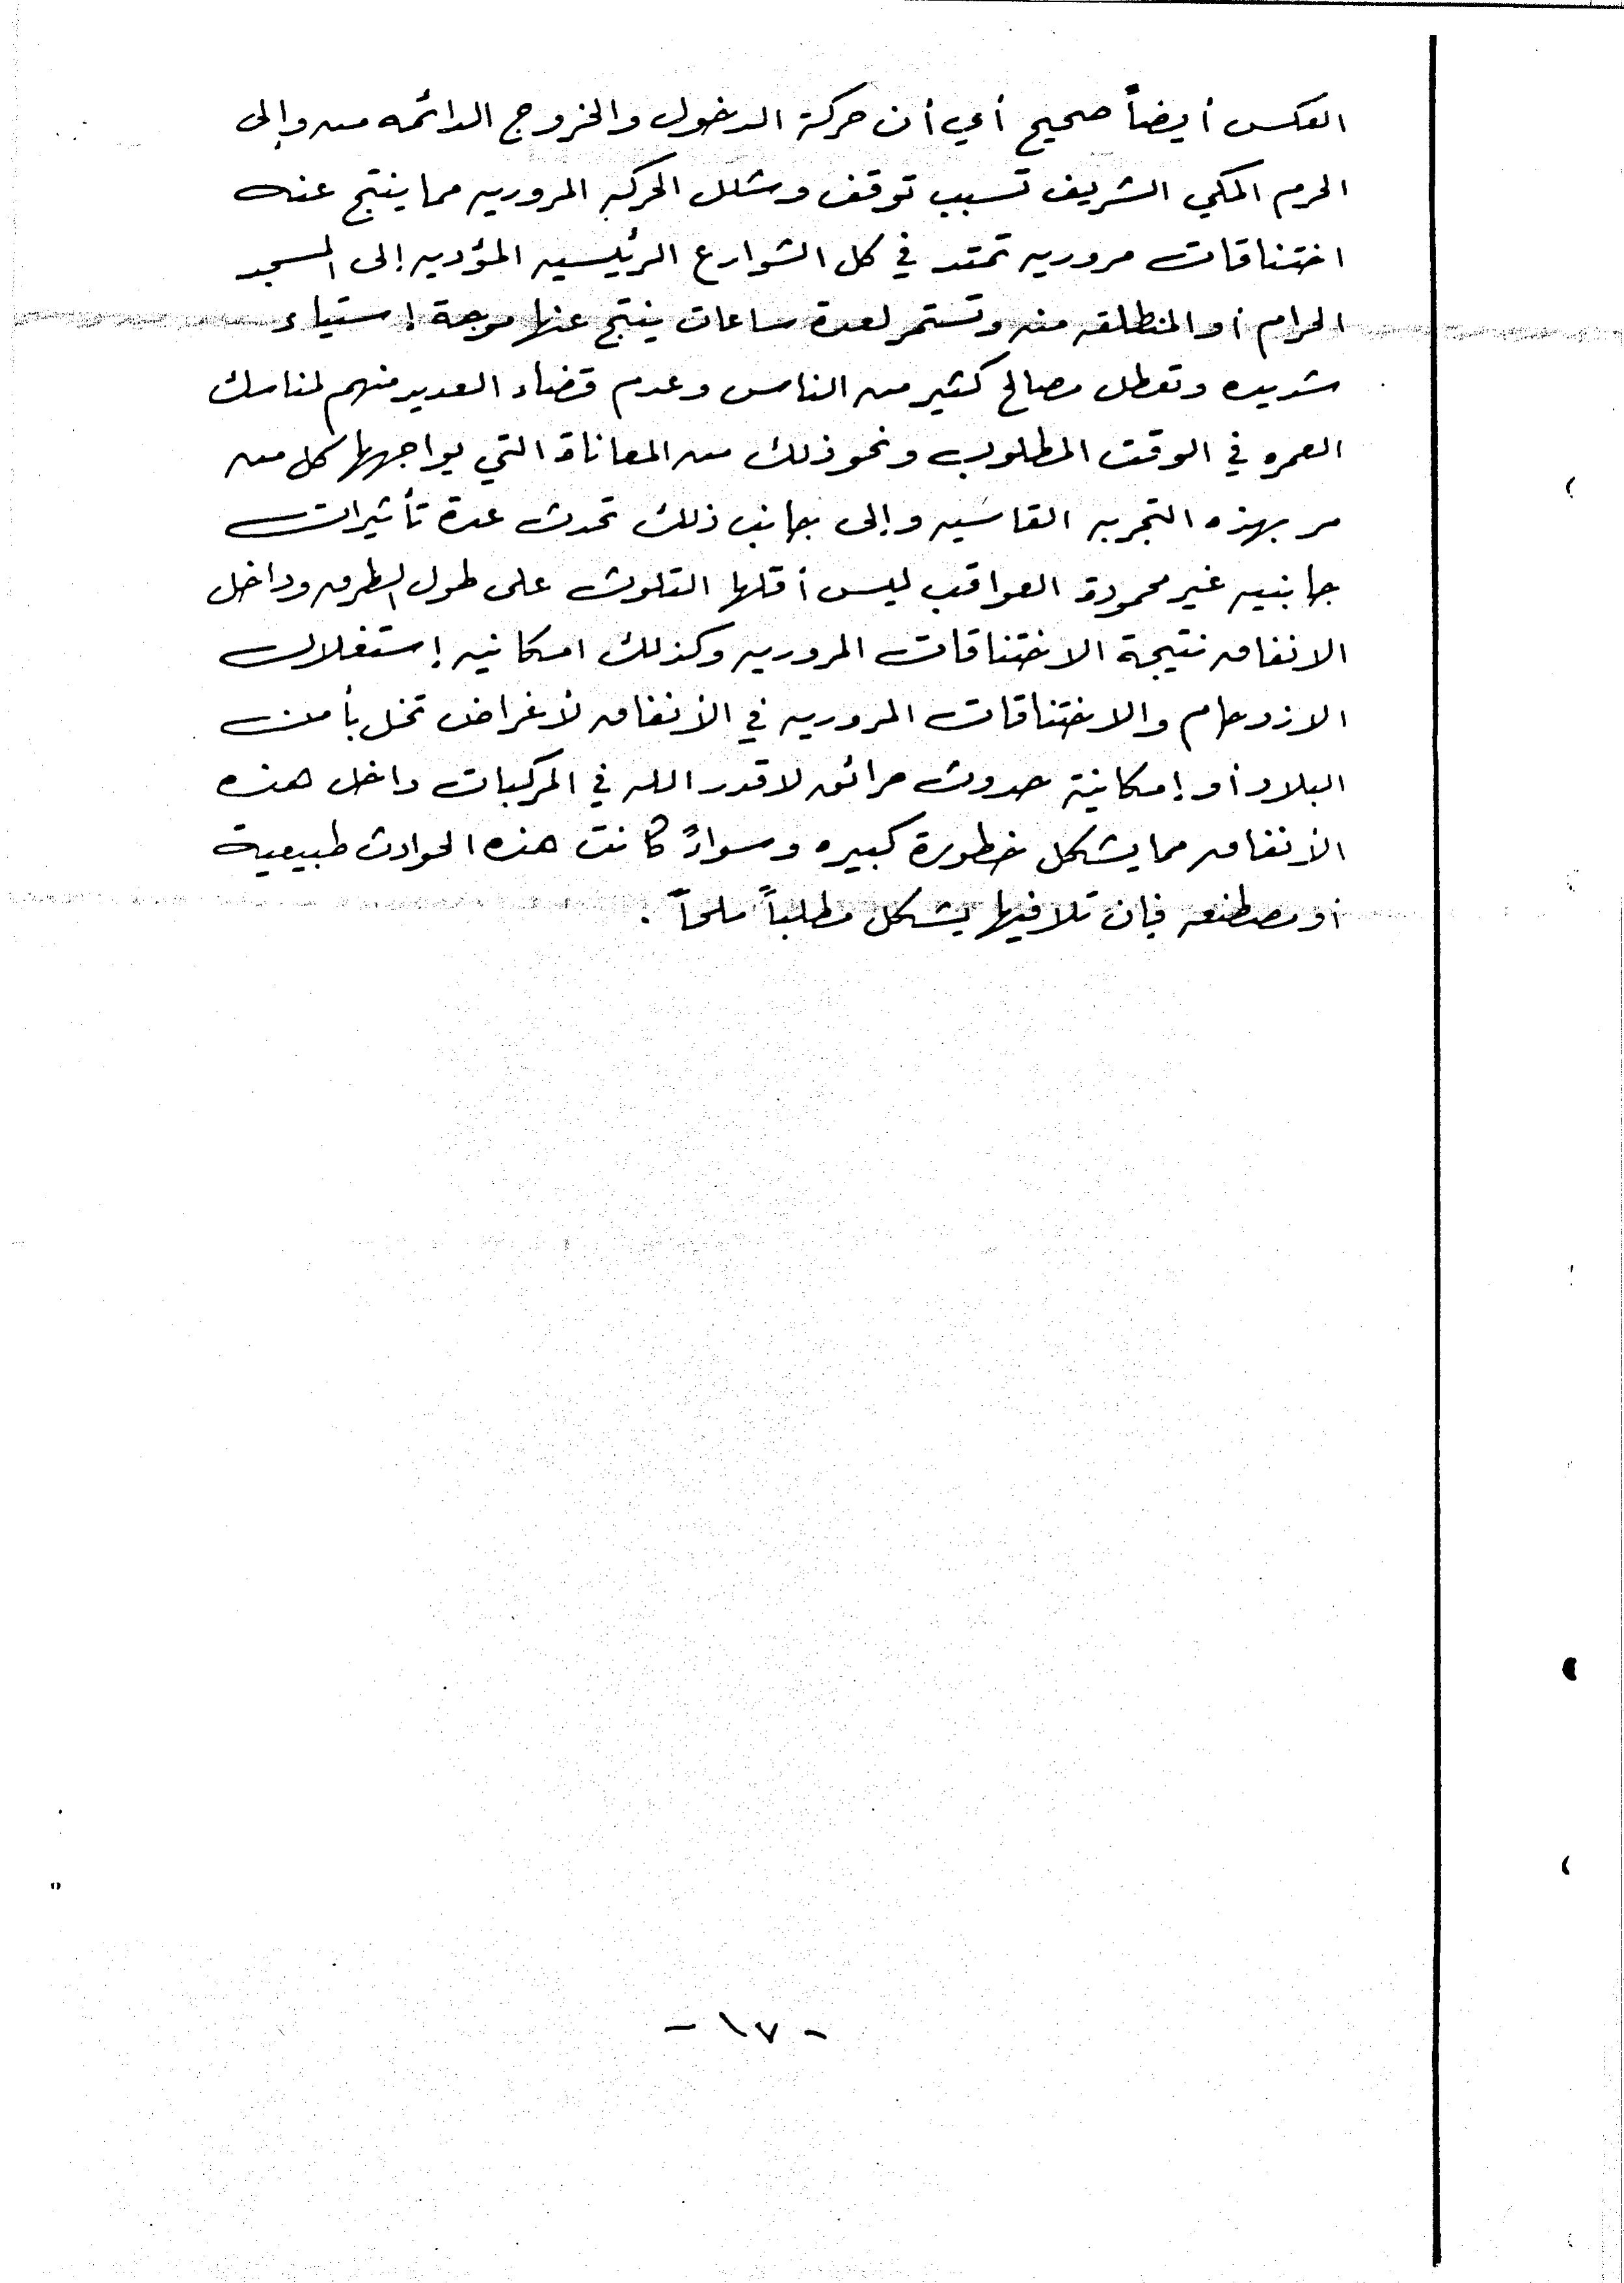 العكس أيضاً صحيح أي أن حركة الدخول والخروج الدائمه من وإلى
الحرم المكي الشريف تسبب توقف وشلل الحركه المروريه مما ينتج عنه
اختناقات مروريه تمتد في كل الشوارع الرئيسيه المؤديه إلى المسجد
الحرام أو المنطلقه منه وتستمر لعدة ساعات ينتج عنها موجة إستياء
شديده وتعطل مصالح كثير من الناس وعدم قضاء العديد منهم لمناسك
العمره في الوقت المطلوب ونحو ذلك من المعاناة التي يواجهها كل من
مر بهذه التجربه القاسيه وإلى جانب ذلك تحدث عدة تأثيرات
جانبيه غير محمودة العواقب ليس أقلها التلوث على طول الطرق وداخل
الانفاق نتيجة الاختناقات المروريه وكذلك امكانيه إستغلال
الازدحام والاختناقات المروريه في الأنفاق لأغراض تخل بأمن
البلاد أو إمكانية حدوث حرائق لا قدر الله في المركبات داخل هذه
الأنفاق مما يشكل خطورة كبيره وسواءً كانت هذه الحوادث طبيعية
أو مصطنعه فإن تلافيها يشكل مطلباً ملحاً .
- ١٧ -